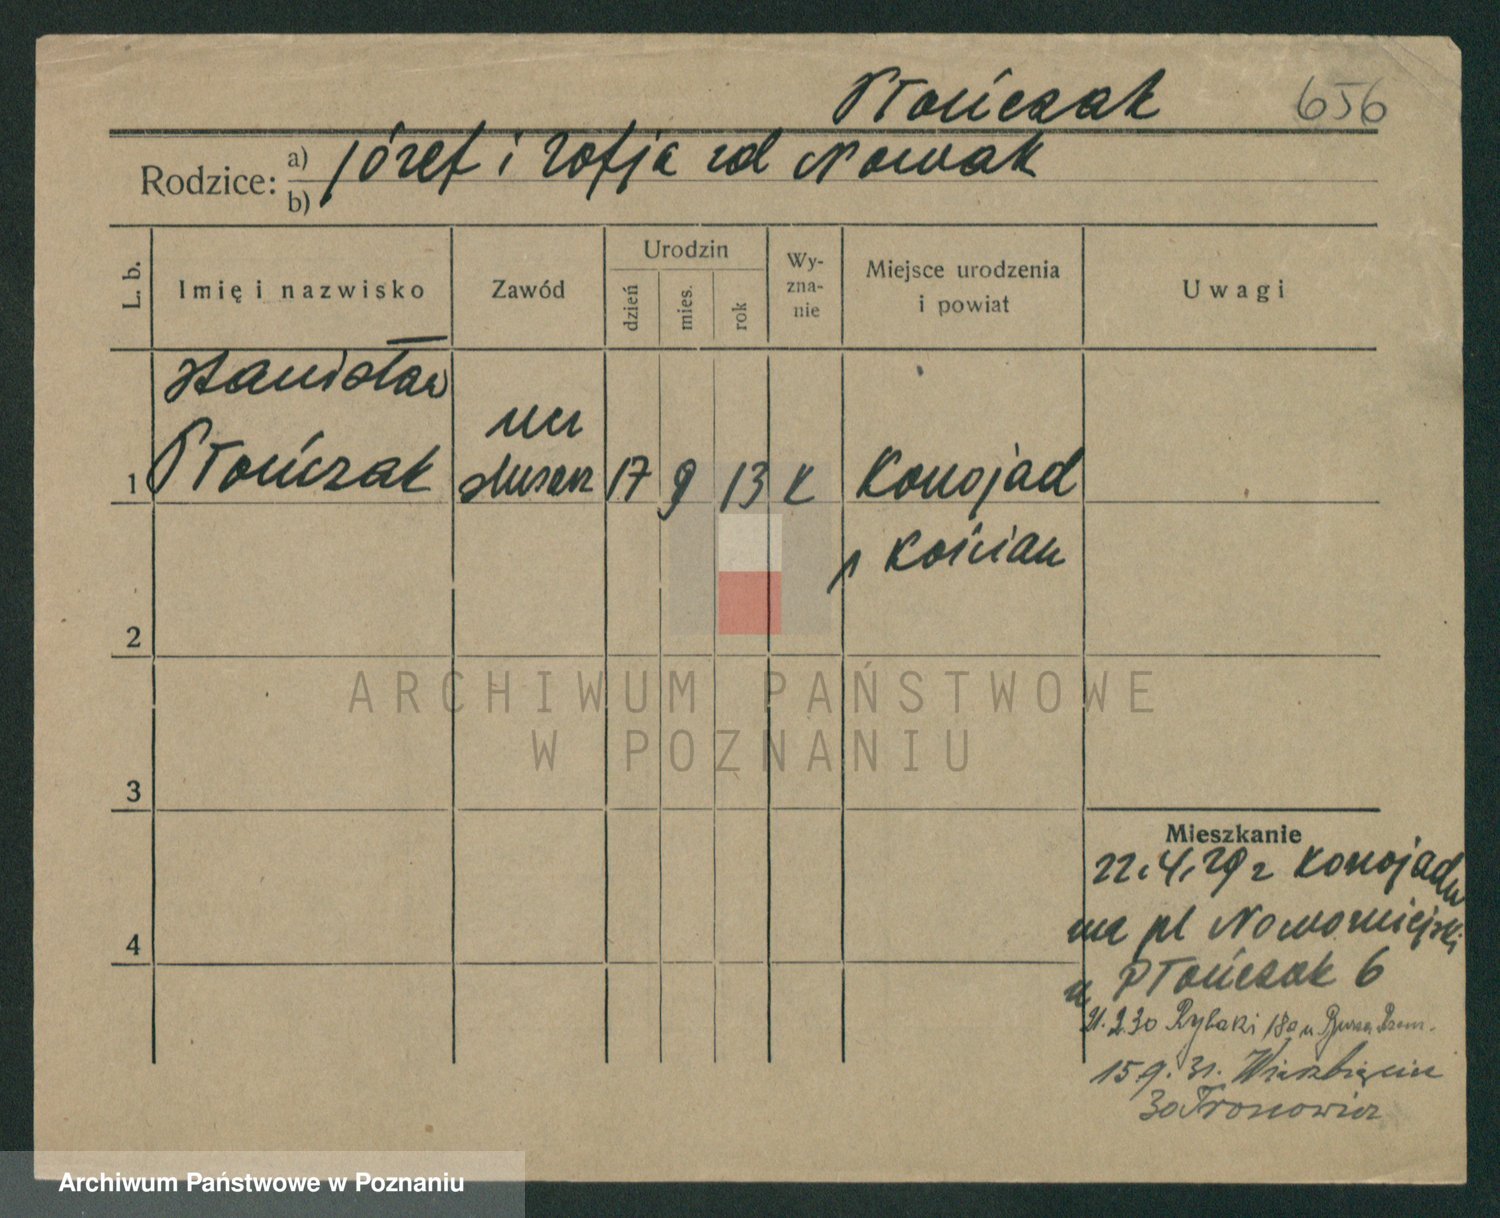 Ptończak 656
Rodzice: a) Józef i Zofja zd Nowak
b)
L. b.
Imię i nazwisko
Zawód
Urodzin
dzień
mies.
rok
Wy-
zna-
nie
Miejsce urodzenia
i powiat
Uwagi
Stanisław
ucz
1 Ptończak ślusarz 17 9 13 K Konojad
p Kościan
2
3
4
ARCHIWUM PAŃSTWOWE
W POZNANIU
Mieszkanie
22.4.29 z Konojadu
na pl Nowomiejski
u Ptończak 6
2.30 Rybaki 18a u Bursa
15.9.31. Wierzbięcice
30
Archiwum Państwowe w Poznaniu